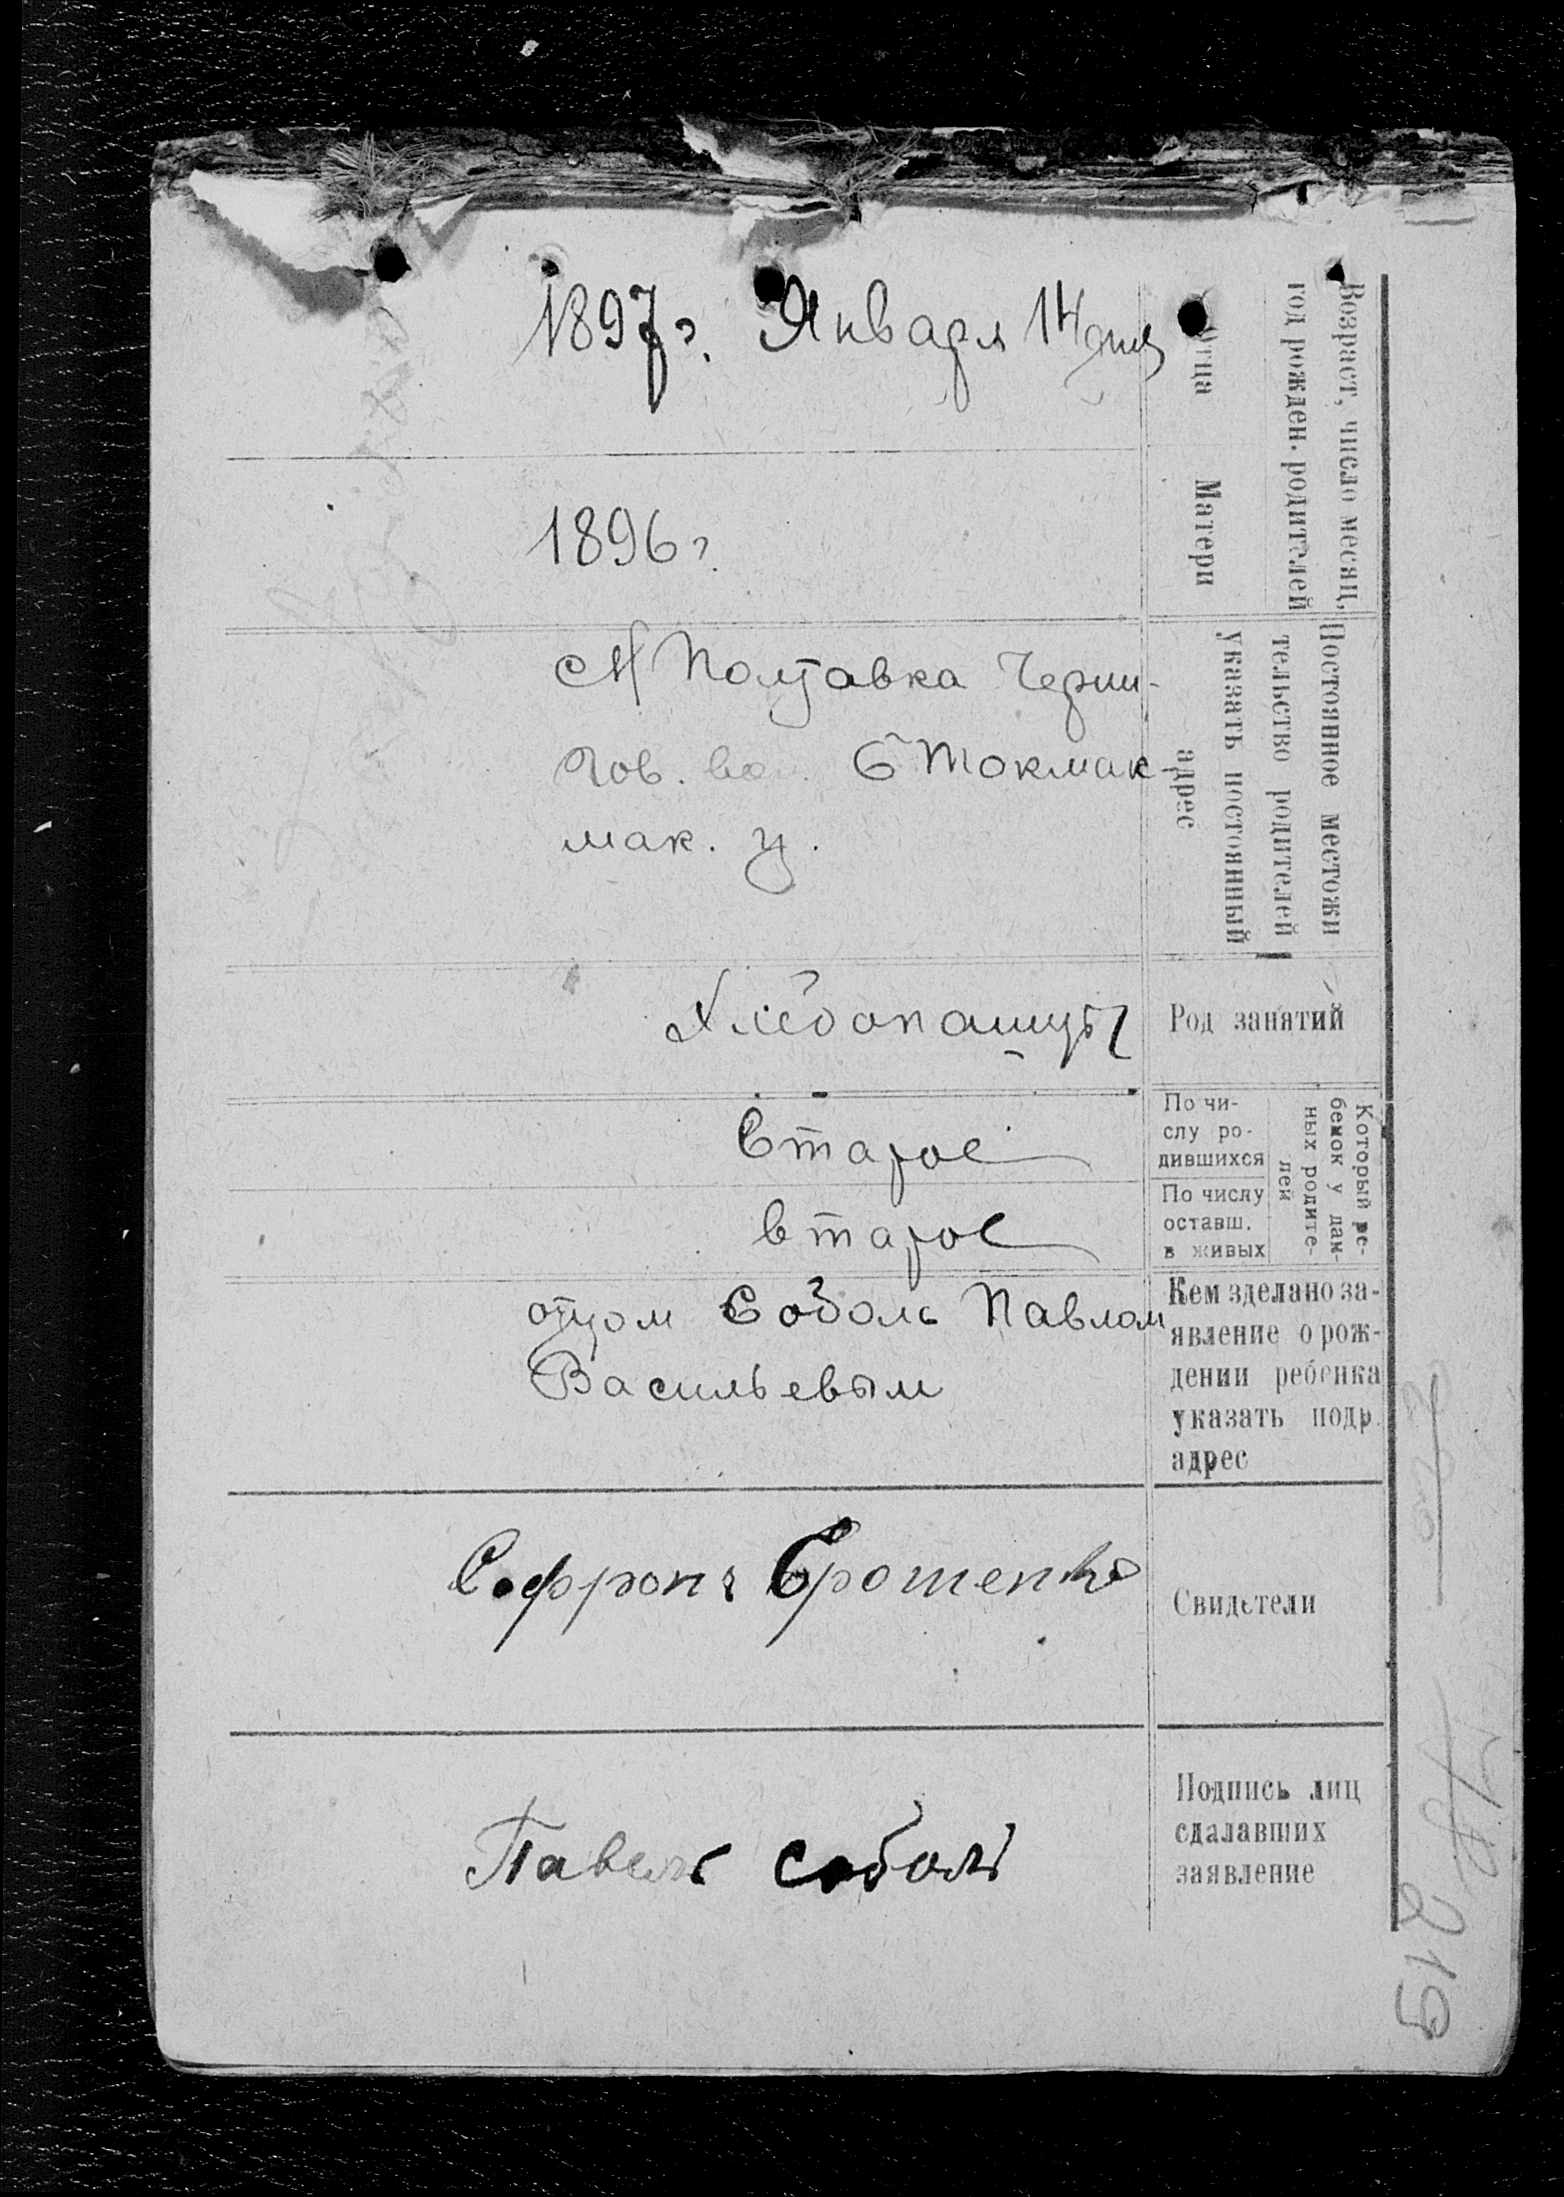 Возраст, число месяц,
год рожден. родителей
Отца
1897 г. Января 14 дня
Матери
1896 г.
Постоянное местожи
тельство родителей
указать постоянный
адрес
Полтавка Черни-
гов. Б Токмак
мак. у.
Род занятий
Хлебопашцы
Который ре-
бенок у дан-
ных родите-
лей
По чи-
слу ро-
дившихся
Второе
По числу
оставш.
в живых
второе
Кем зделано за-
явление о рож-
дении ребенка
указать подр.
адрес
отцом Соболь Павлом
Васильевым
Свидетели
Софрон Ерошенко
Подпись лиц
сдалавших
заявление
Павель соболь
219